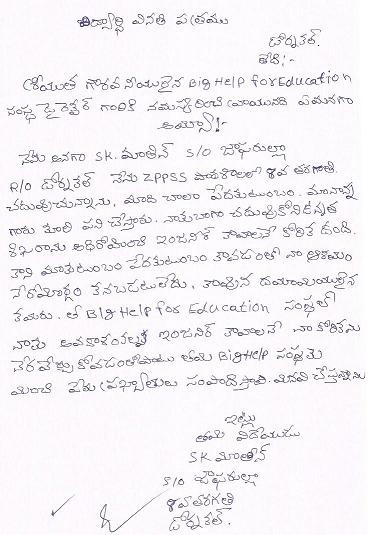 విద్యార్థి వినతి పత్రము
డోర్నకల్.
తేది:-
శ్రీయుత గౌరవనీయులైన Big Help for Education
సంస్థ డైరెక్టర్ గారికి నమస్కరించి వ్రాయునది ఏమనగా
అయ్యా!-
నేను అనగా SK. మాతిన్ S/O జాఫరుల్లా
R/O డోర్నకల్ నేను ZPPSS పాఠశాలలో 8వ తరగతి
చదువుచున్నాను, మాది చాలా పేదకుటుంబం. మానాన్న
గారు కూలి పని చేస్తారు. నాకుబాగా చదువుకొని ఉన్నత
శిఖరాను అధిరోహించి ఇంజనీర్ కావాలనే కోరిక ఉంది.
కాని మాకుటుంబం పేదకుటుంబం కావడంతో నా ఆశయం
నేరవేరే మార్గం కనబడుటలేదు, కావున దయామయులైన
తమరు. ఈ Big Help for Education సంస్థలో
నాకు అవకాశం ఇంజనీర్ కావాలనే నా కోరికను
నెరవేర్చుకోవడంతోపాటు తమ Big Help సంస్థకు
మంచి పేరు ప్రఖ్యాతులు సంపాదిస్తానని మనవి చేస్తున్నాను
ఇట్లు
తమ విదేయుడు
SK మాతీన్
S/O జాఫరుల్లా
8వతరగతి
డోర్నకల్.